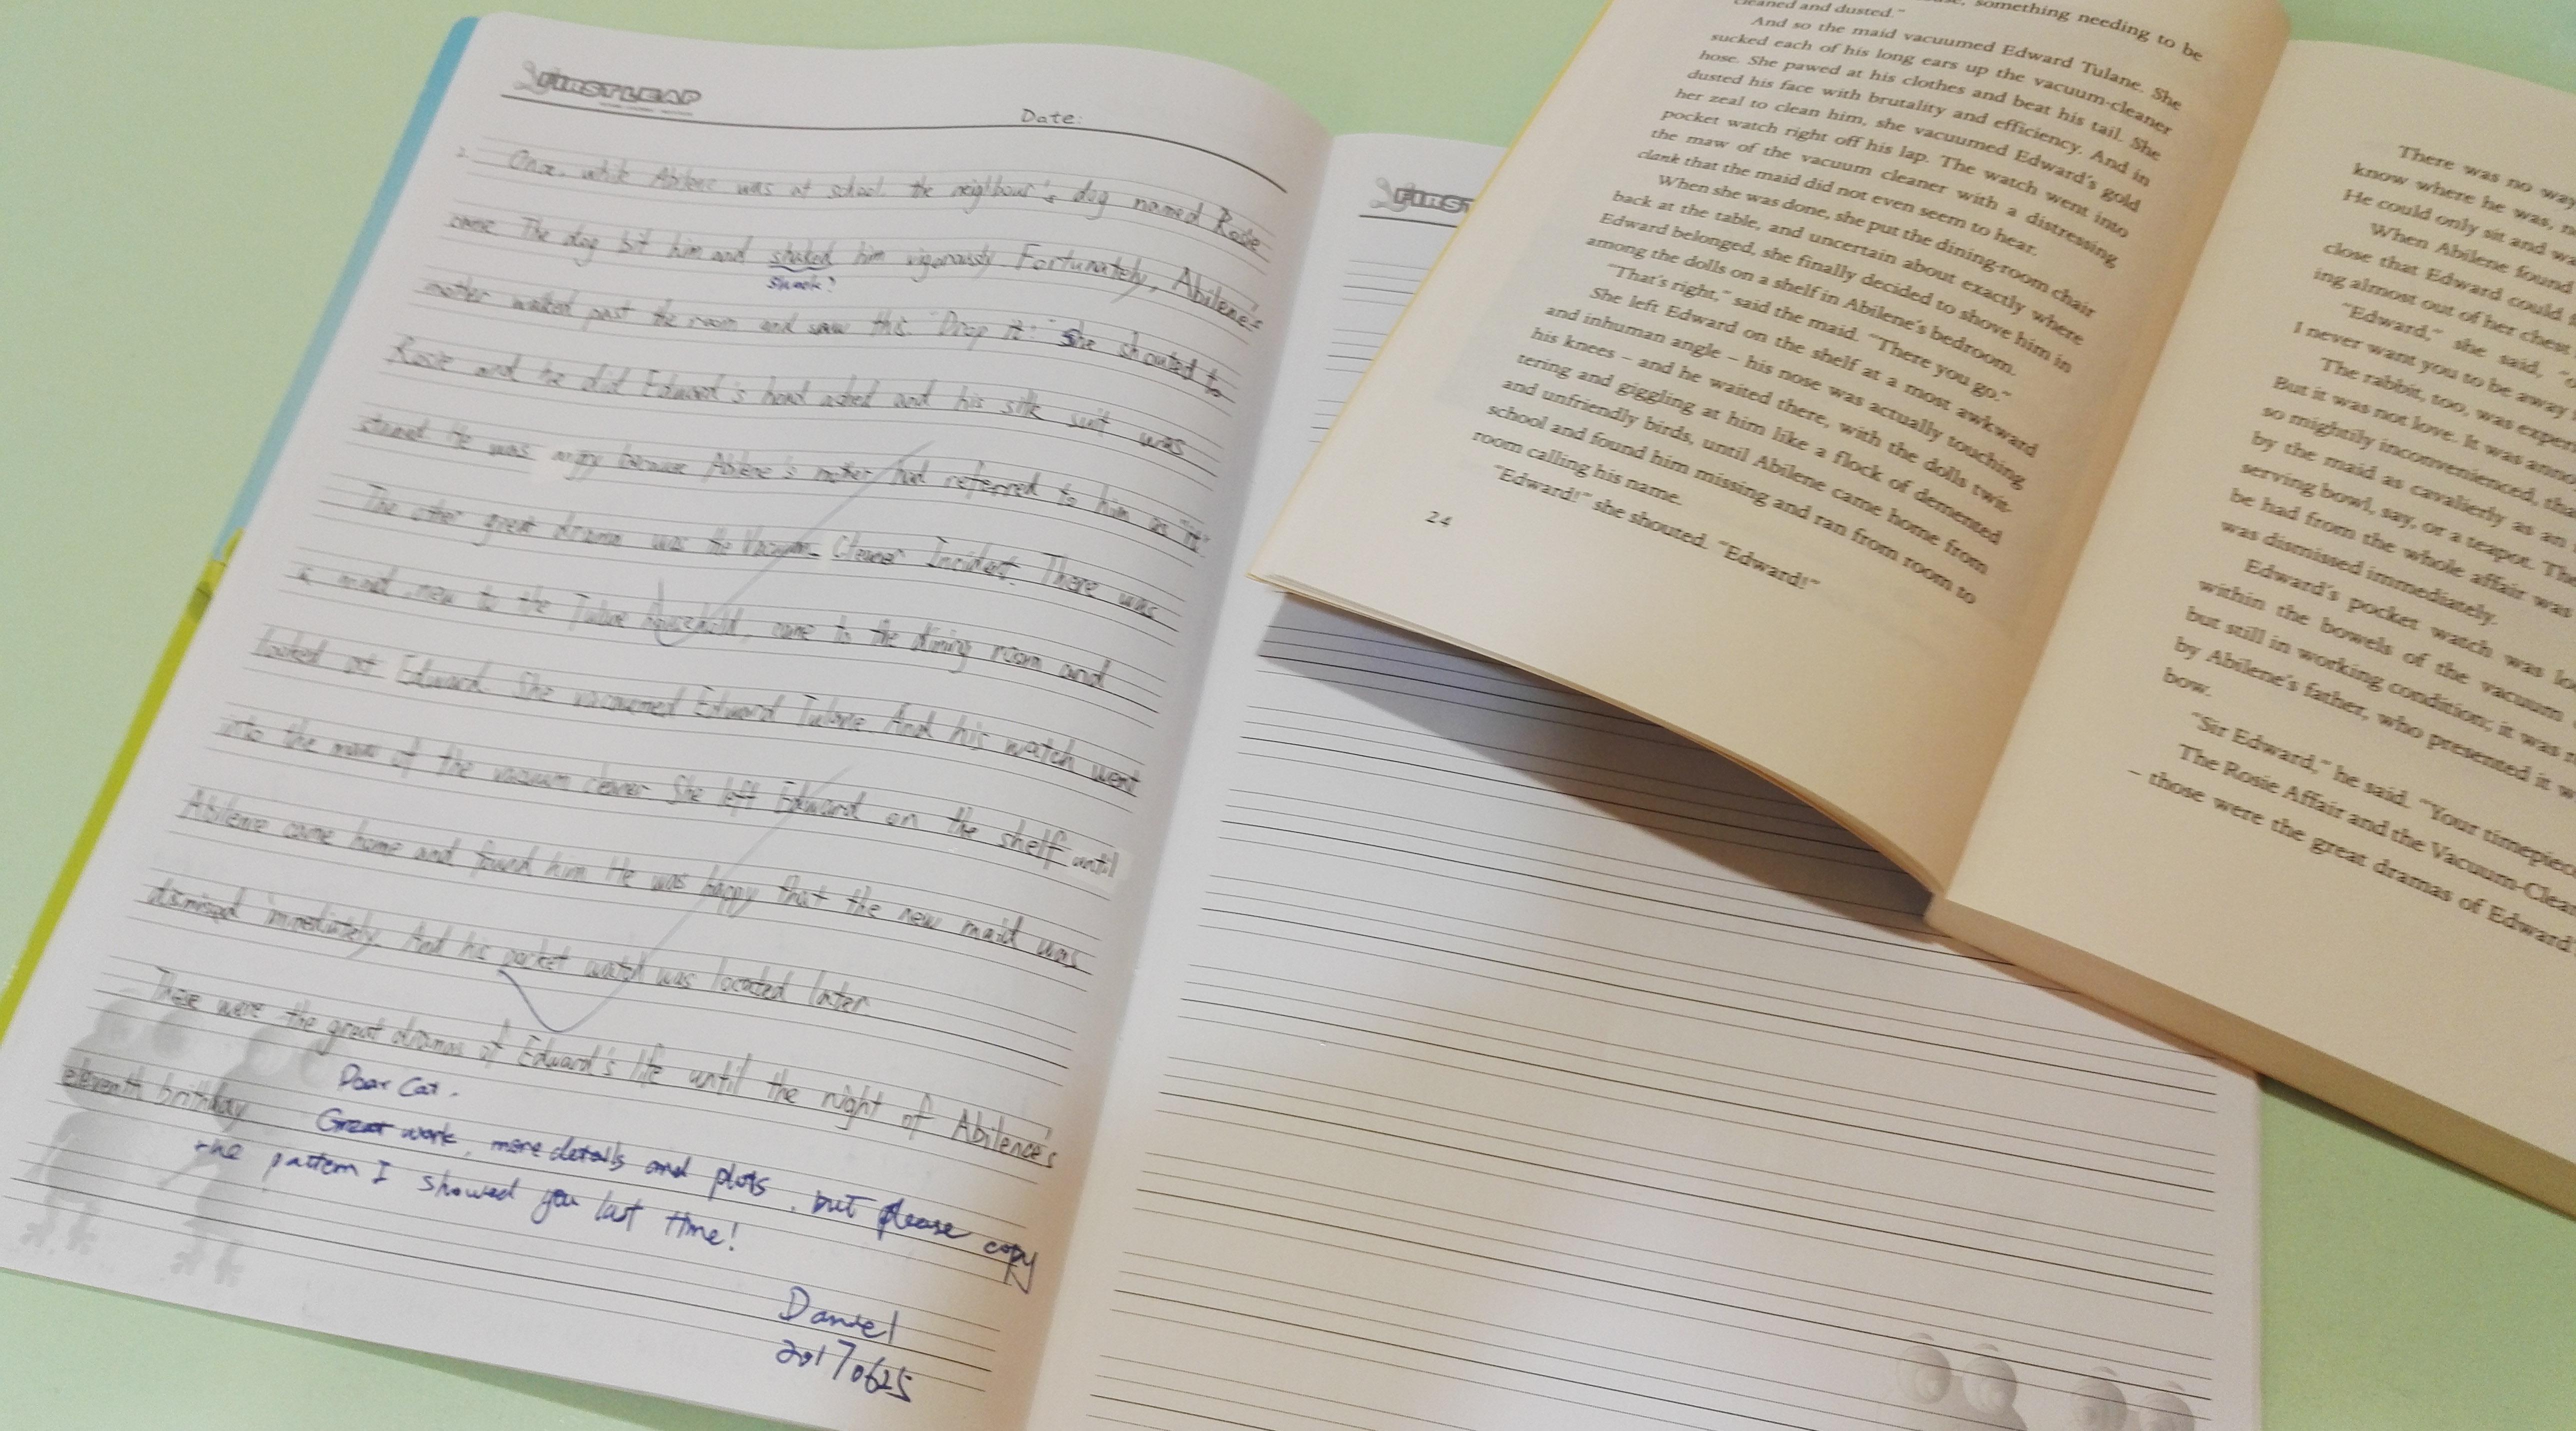 FIRSTLEAP
Date:
2. Once, while Abilene was at school, the neighbour's dog named Rosie
came The dog bit him and shaked him vigorously. Fortunately, Abilene's
shook?
mother walked past the room and saw this. "Drop it!" She shouted to
Rosie and he did Edward's head ached and his silk suit was
stained He was angry because Abilene's mother had referred to him as "it".
The other great drama was the Vacuum Cleaner Incident. There was
a maid, new to the Tulane household, came to the dining room and
looked at Edward. She vacuumed Edward Tulane. And his watch went
into the maw of the vacuum cleaner. She left Edward on the shelf until
Abilene came home and found him He was happy that the new maid was
dismissed immediately. And his pocket watch was located later
These were the great dramas of Edward's life until the night of Abilence's
eleventh brithday
Dear Cat.
Great work, more details and plots, but please copy
the pattern I showed you last time!
Daniel
20170625
FIRST
something needing to be
cleaned and dusted."
And so the maid vacuumed Edward Tulane. She
sucked each of his long ears up the vacuum-cleaner
hose. She pawed at his clothes and beat his tail. She
dusted his face with brutality and efficiency. And in
her zeal to clean him, she vacuumed Edward's gold
pocket watch right off his lap. The watch went into
the maw of the vacuum cleaner with a distressing
clank that the maid did not even seem to hear.
When she was done, she put the dining-room chair
back at the table, and uncertain about exactly where
Edward belonged, she finally decided to shove him in
among the dolls on a shelf in Abilene's bedroom.
"That's right," said the maid. "There you go."
She left Edward on the shelf at a most awkward
and inhuman angle – his nose was actually touching
his knees – and he waited there, with the dolls twit-
tering and giggling at him like a flock of demented
and unfriendly birds, until Abilene came home from
school and found him missing and ran from room to
room calling his name.
"Edward!" she shouted. "Edward!"
24
There was no way
know where he was,
He could only sit and
When Abilene found
close that Edward could
ing almost out of her chest.
"Edward," she said,
I never want you to be away
The rabbit, too, was
But it was not love. It was
so mightily inconvenienced,
by the maid as cavalierly as an
serving bowl, say, or a teapot.
be had from the whole affair was
was dismissed immediately.
Edward's pocket watch was
within the bowels of the vacuum
but still in working condition; it was
by Abilene's father, who presented it
bow.
"Sir Edward," he said. "Your
The Rosie Affair and the
– those were the great dramas of